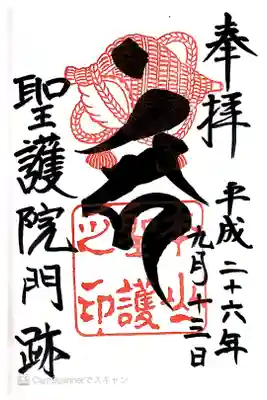 奉拝
平成二十六年
九月十三日
聖護
之印
聖護院門跡
CamScannerでスキャン